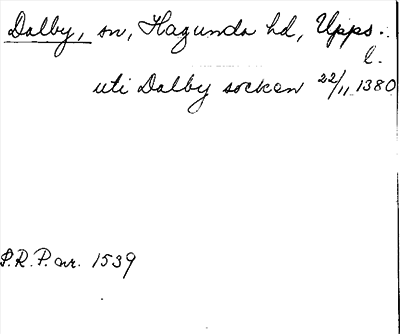 Dalby, sn, Hagunda hd, Upps.
l.
uti Dalby socken 22/11 1380
P.R.P. avr. 1539